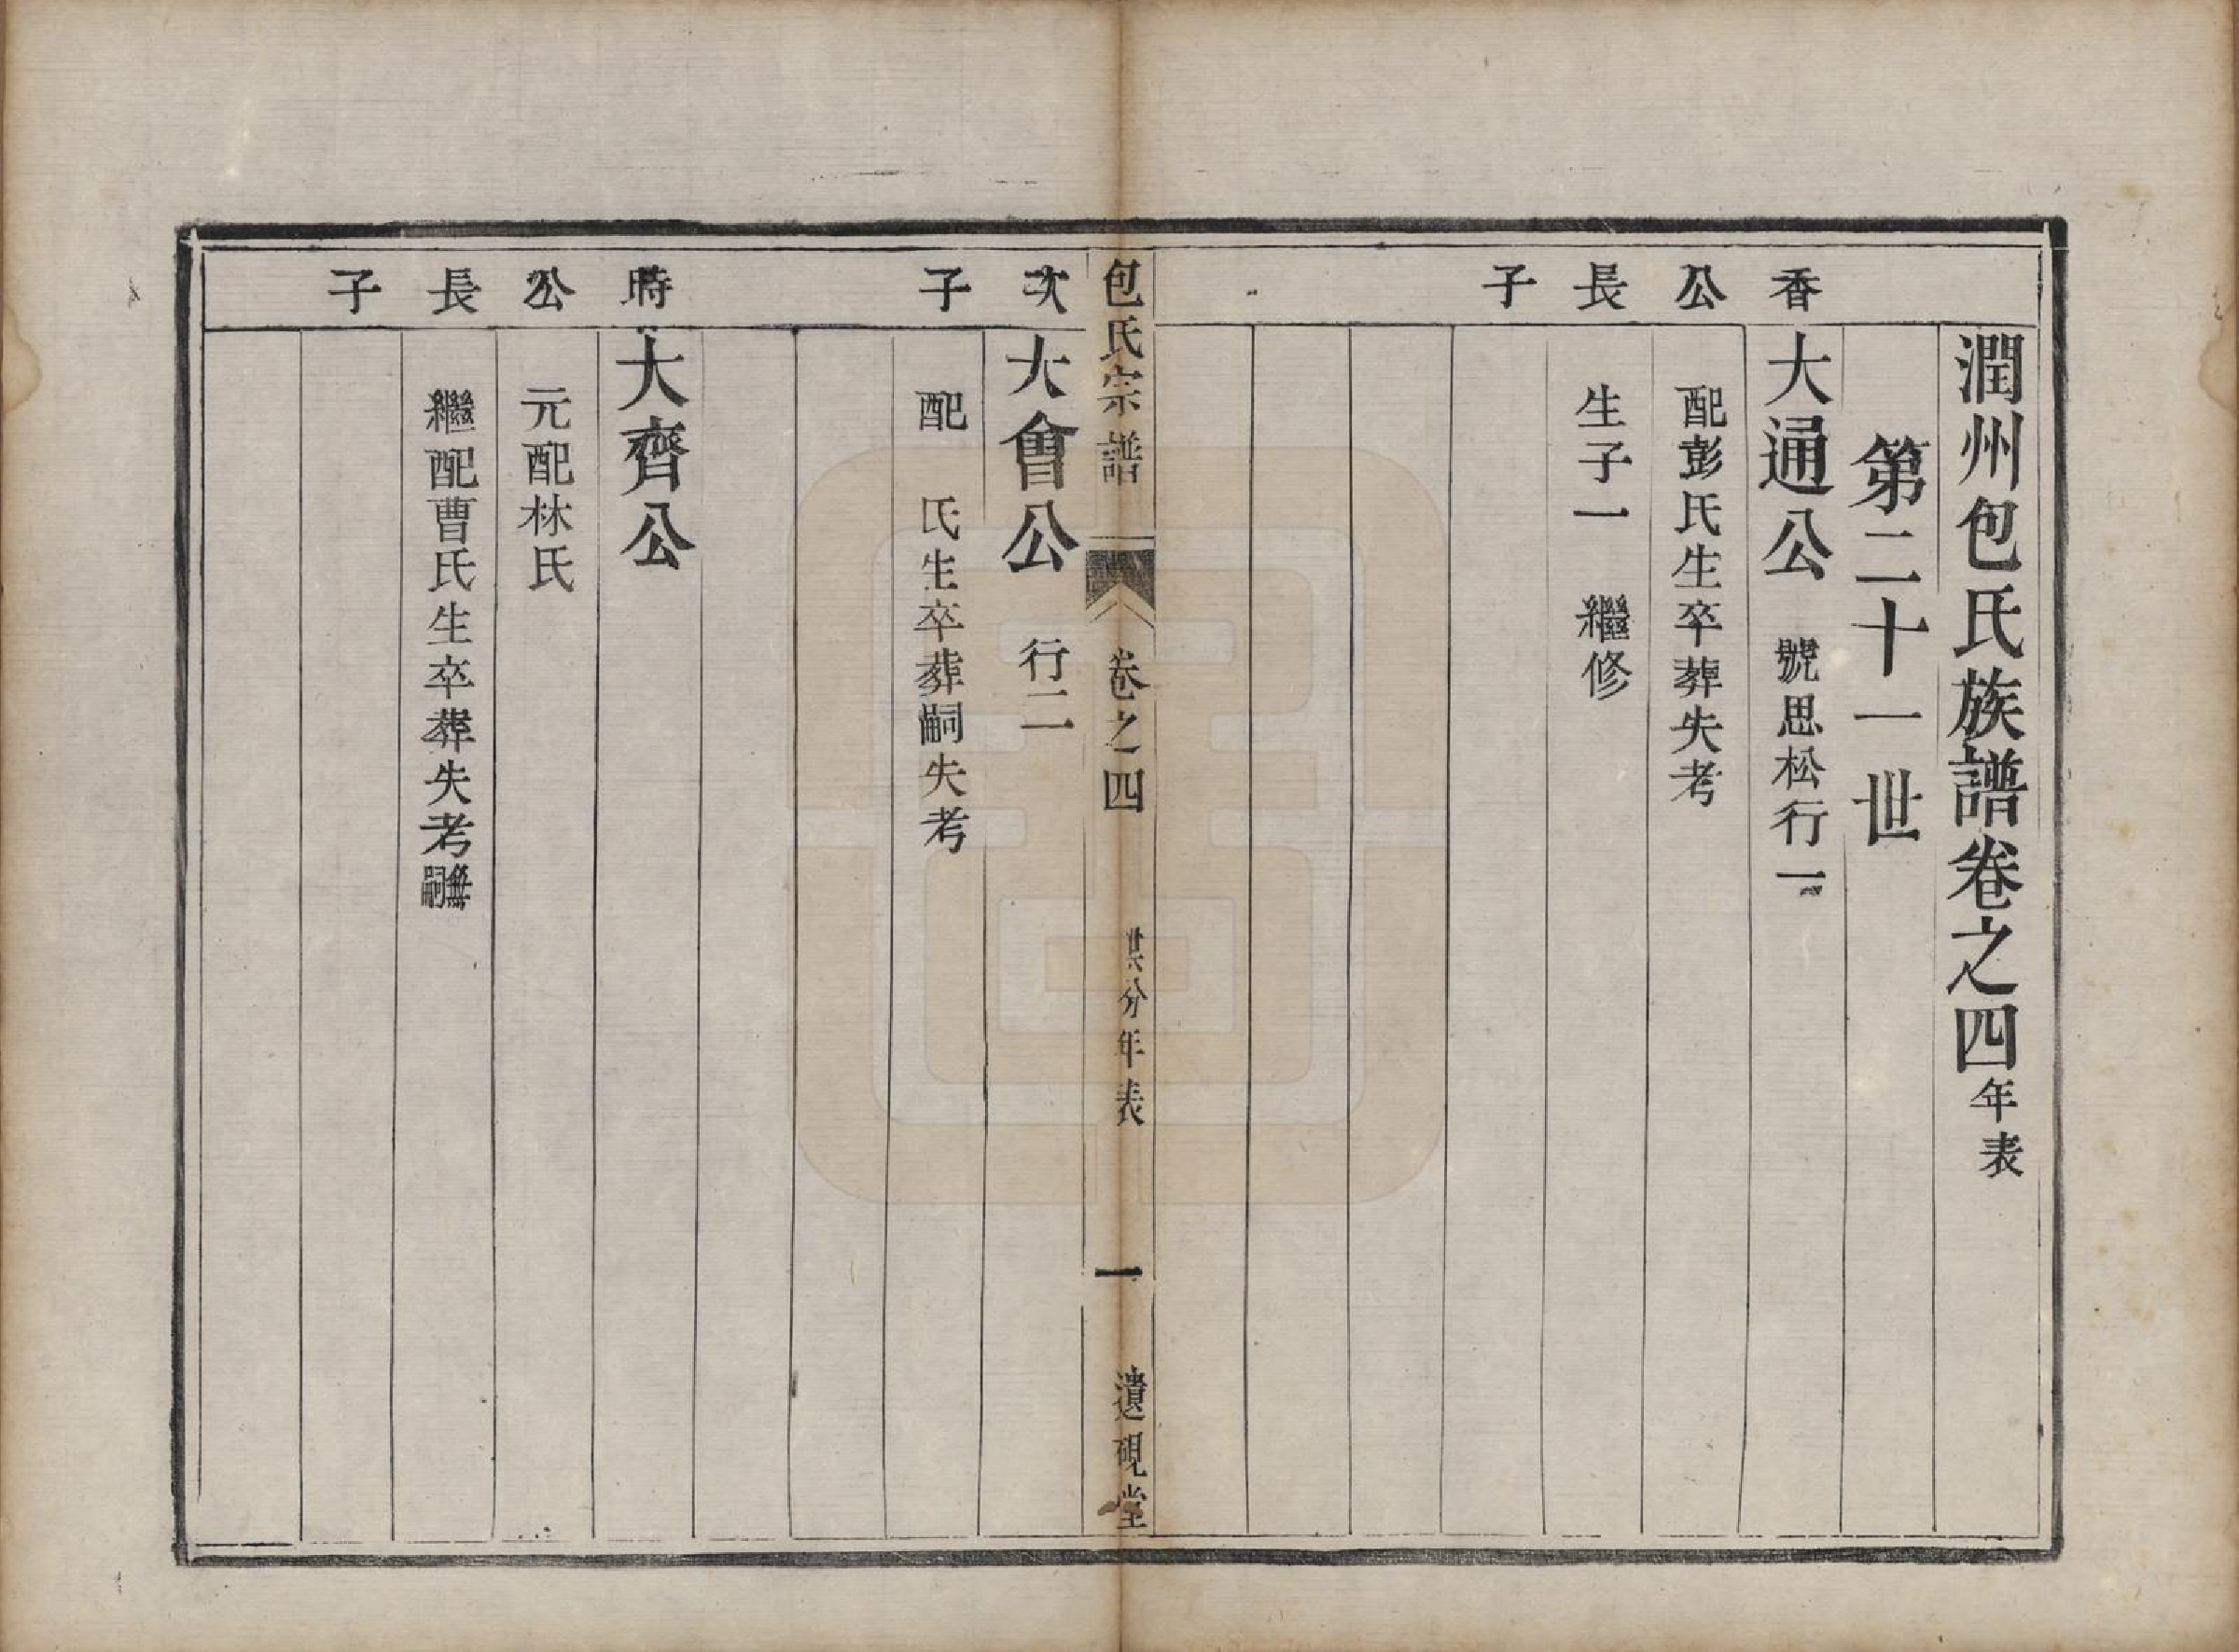 潤州包氏族譜卷之四年表
第二十一世
香公長子
大通公 號思松行一
配彭氏生卒葬失考
生子一 繼修
包氏宗譜 卷之四 世分年表 一 遺硯堂
次子
大會公 行二
配 氏生卒葬嗣失考
時公長子
大齊公
元配林氏
繼配曹氏生卒葬失考無嗣